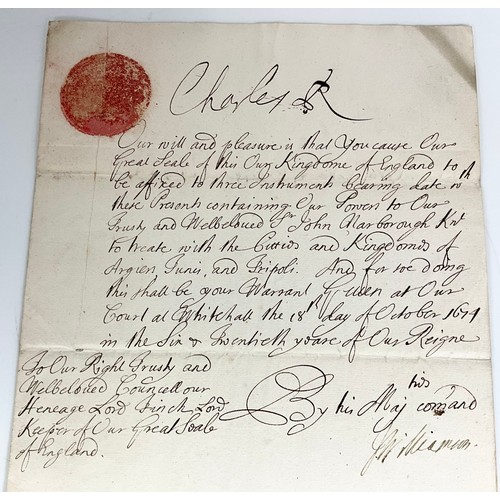 Charles R
Our will and pleasure is that You cause Our
Great Seale of this Our Kingdome of England to
be affixed to three Instruments bearing date wth
these Presents containing Our Powers to Our
Trusty and Welbeloved Sr John Narborough Knt
to treate with the Citties and Kingdomes of
Argier, Tunis, and Tripoli. And for soe doing
this shall be your Warrant Given at Our
Court at Whitehall the 18th day of October 1674
in the Six & Twentieth yeare of Our Reigne
To Our Right Trusty and
Welbeloved Councellour
Heneage Lord Finch Lord
Keeper of Our Great Seale
of England.
By his Majties comand
J Williamson.